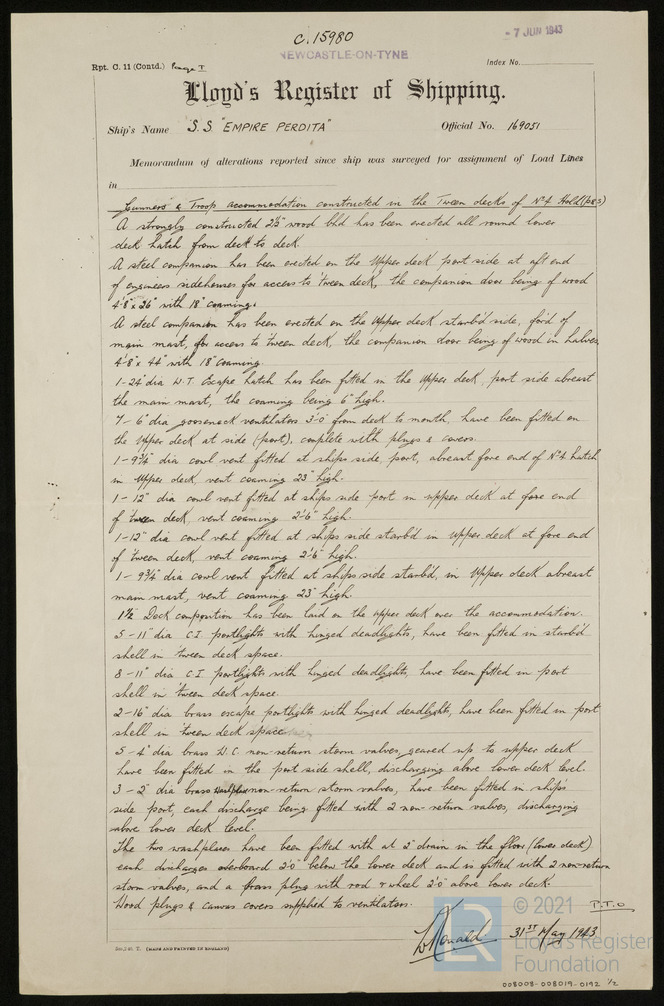 C.15980
- 7 JUN 1943
NEWCASTLE-ON-TYNE
Rpt. C. 11 (Contd.) Page I
Index No.
Lloyd's Register of Shipping.
Ship's Name S.S. "EMPIRE PERDITA" Official No. 169051
Memorandum of alterations reported since ship was surveyed for assignment of Load Lines
in
Gunners' & Troop accommodation constructed in the Tween decks of No 4 Hold
A strongly constructed 2½" wood bhd has been erected all round lower
deck hatch from deck to deck
A steel companion has been erected on the Upper deck port side at aft end
of engineers sidehouses for access to 'tween deck, the companion door being of wood
4'8" x 26" with 18" coamings.
A steel companion has been erected on the Upper deck starb'd side, for'd of
main mast, for access to 'tween deck, the companion door being of wood in halves
4'-8" x 44" with 18" coaming.
1-24" dia W.T. Escape hatch has been fitted in the Upper deck, port side abreast
the main mast, the coaming being 6" high.
7-6" dia gooseneck ventilators 3'-0" from deck to mouth, have been fitted on
the Upper deck at side (port), complete with plugs & covers.
1-9¾" dia cowl vent fitted at ships side, port, abreast fore end of No 4 hatch
in Upper deck, vent coaming 23" high.
1-12" dia cowl vent fitted at ships side port in upper deck at fore end
of 'tween deck, vent coaming 2'6" high.
1-12" dia cowl vent fitted at ships side starb'd in Upper deck at fore end
of 'tween deck, vent coaming 2'6" high.
1-9¾" dia cowl vent fitted at ships side starb'd, in Upper deck abreast
main mast, vent coaming 23" high.
1½ Deck composition has been laid on the upper deck over the accommodation.
5-11" dia C.I portlights with hinged deadlights, have been fitted in starb'd
shell in 'tween deck space.
8-11" dia C.I portlights with hinged deadlights, have been fitted in port
shell in 'tween deck space.
2-16" dia brass escape portlights with hinged deadlights, have been fitted in port
shell in 'tween deck space
5-4" dia brass W.C. non-return storm valves, geared up to upper deck
have been fitted in the port side shell, discharging above lower deck level.
3-2" dia brass washplace non-return storm valves, have been fitted in ships
side port, each discharge being fitted with 2 non-return valves, discharging
above lower deck level.
The two washplaces have been fitted with at 2" drain in the floor (lower deck)
each discharges overboard 2'0" below the lower deck and is fitted with 2 non-return
storm valves, and a brass plug with rod & wheel 2'0" above lower deck.
Wood plugs & canvas covers supplied to ventilators.
P.T.O
31ST May 1943
© 2021
LR
Lloyd's Register
Foundation
(MADE AND PRINTED IN ENGLAND)
008008-008019-0192 ½